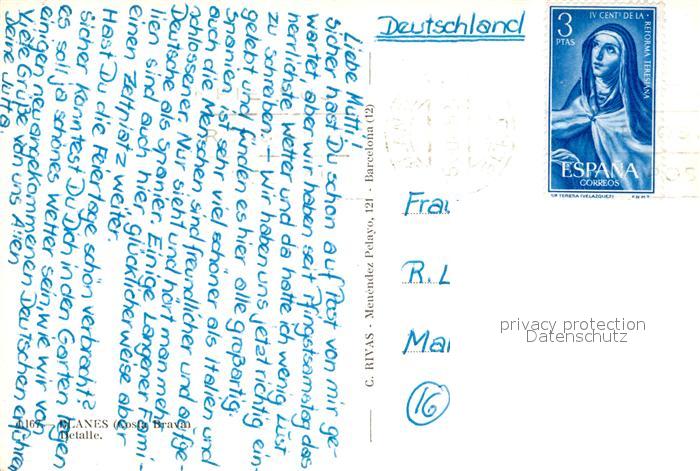 Liebe Mutti!
Sicher hast Du schon auf Post von mir ge-
wartet, aber wir haben seit Pfingstsamstag das
herrlichste Wetter und da hatte ich wenig Lust
zu schreiben. Wir haben uns jetzt richtig ein-
gelebt und finden es hier alle großartig.
Spanien ist sehr viel schöner als Italien und
auch die Menschen sind freundlicher und aufge-
schlossener. Nur sieht und hört man mehr
Deutsche als Spanier. Einige Langener Fami-
lien sind auch hier, glücklicherweise aber
einen Zeltplatz weiter.
Hast Du die Feiertage schön verbracht?
Sicher konntest Du Dich in den Garten legen
es soll ja schönes Wetter sein, wie wir von
einigen neuangekommenen Deutschen erfuhren
Viele Grüße von uns Allen
Deine Jutta.
BLANES (Costa Brava)
Detalle.
C. RIVAS - Menéndez Pelayo, 121 - Barcelona (12)
Deutschland
3
PTAS
IV CENT. DE LA
REFORMA TERESIANA
ESPAÑA
CORREOS
STA TERESA (VELAZQUEZ)
F.N.M.T.
Frau
R. L
Mai
16
privacy protection
Datenschutz